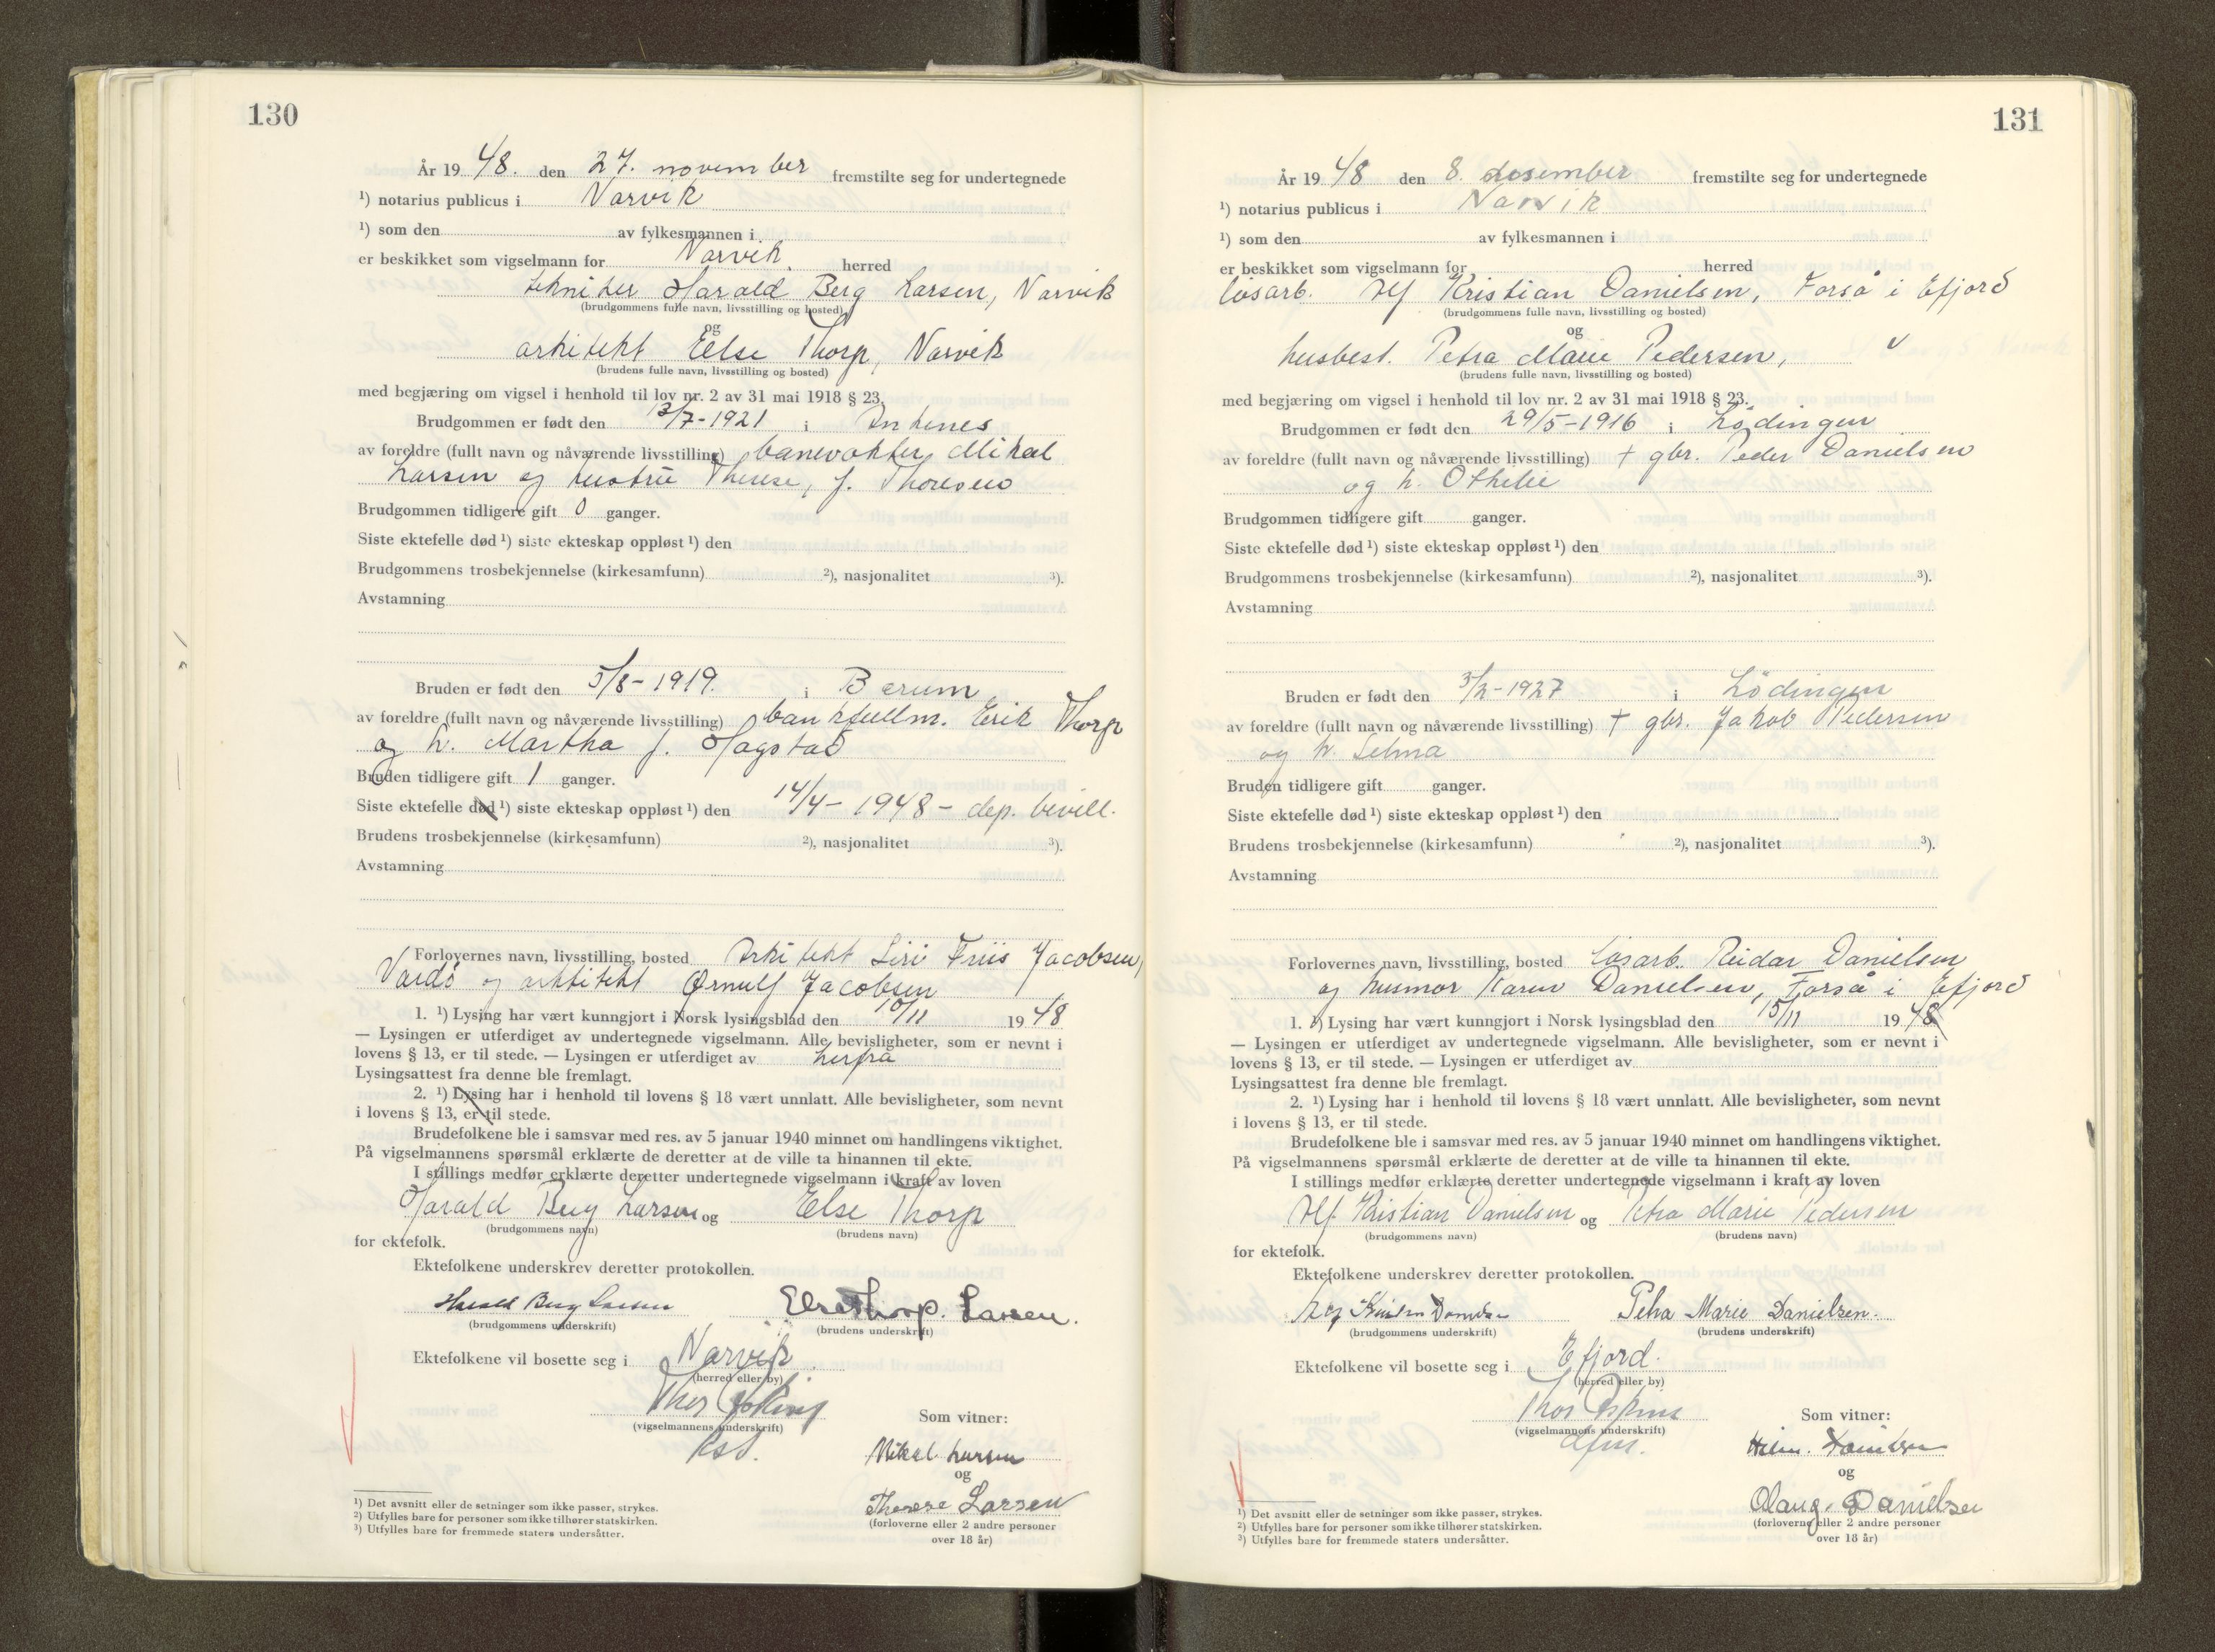 130
År 19 48. den 27. november fremstilte seg for undertegnede
¹) notarius publicus i Narvik
¹) som den av fylkesmannen i
er beskikket som vigselmann for Narvik. herred
tekniker Harald Berg Larsen, Narvik
(brudgommens fulle navn, livsstilling og bosted)
og
arkitekt Else Thorp, Narvik
(brudens fulle navn, livsstilling og bosted)
med begjæring om vigsel i henhold til lov nr. 2 av 31 mai 1918 § 23.
Brudgommen er født den 13/7-1921 i Ankenes
av foreldre (fullt navn og nåværende livsstilling) banevokter Mikal
Larsen og hustru Therese, f. Thoresen
Brudgommen tidligere gift 0 ganger.
Siste ektefelle død ¹) siste ekteskap oppløst ¹) den
Brudgommens trosbekjennelse (kirkesamfunn) ²), nasjonalitet ³).
Avstamning
Bruden er født den 5/8-1919. i Bærum
av foreldre (fullt navn og nåværende livsstilling) bankfullm. Erik Thorp
og h. Martha f. Hagstad
Bruden tidligere gift 1 ganger.
Siste ektefelle død ¹) siste ekteskap oppløst ¹) den 14/4-1948 - dep. bevill.
Brudens trosbekjennelse (kirkesamfunn) ²), nasjonalitet ³).
Avstamning
Forlovernes navn, livsstilling, bosted Arkitekt Siri Friis Jacobsen,
Vardö og arkitekt Ørnulf Jacobsen
1. ¹) Lysing har vært kunngjort i Norsk lysingsblad den 10/11 19 48
— Lysingen er utferdiget av undertegnede vigselmann. Alle bevisligheter, som er nevnt i
lovens § 13, er til stede. — Lysingen er utferdiget av herfra
Lysingsattest fra denne ble fremlagt.
2. ¹) Lysing har i henhold til lovens § 18 vært unnlatt. Alle bevisligheter, som nevnt
i lovens § 13, er til stede.
Brudefolkene ble i samsvar med res. av 5 januar 1940 minnet om handlingens viktighet.
På vigselmannens spørsmål erklærte de deretter at de ville ta hinannen til ekte.
I stillings medfør erklærte deretter undertegnede vigselmann i kraft av loven
Harald Berg Larsen og Else Thorp
(brudgommens navn) (brudens navn)
for ektefolk.
Ektefolkene underskrev deretter protokollen.
Harald Berg Larsen Else Thorp. Larsen.
(brudgommens underskrift) (brudens underskrift)
Ektefolkene vil bosette seg i Narvik
(herred eller by)
Thor
(vigselmannens underskrift)
Som vitner:
Mikal Larsen
og
Therese Larsen
(forloverne eller 2 andre personer
over 18 år)
¹) Det avsnitt eller de setninger som ikke passer, strykes.
²) Utfylles bare for personer som ikke tilhører statskirken.
³) Utfylles bare for fremmede staters undersåtter.
131
År 19 48 den 8. desember fremstilte seg for undertegnede
¹) notarius publicus i Narvik
¹) som den av fylkesmannen i
er beskikket som vigselmann for herred
løsarb. Alf Kristian Danielsen, Forså i Efjord
(brudgommens fulle navn, livsstilling og bosted)
og
husbest. Petra Marie Pedersen, v
(brudens fulle navn, livsstilling og bosted)
med begjæring om vigsel i henhold til lov nr. 2 av 31 mai 1918 § 23.
Brudgommen er født den 29/5-1916 i Lödingen
av foreldre (fullt navn og nåværende livsstilling) + gbr. Peder Danielsen
og h. Othelie
Brudgommen tidligere gift ganger.
Siste ektefelle død ¹) siste ekteskap oppløst ¹) den
Brudgommens trosbekjennelse (kirkesamfunn) ²), nasjonalitet ³).
Avstamning
Bruden er født den 3/2-1927 i Lödingen
av foreldre (fullt navn og nåværende livsstilling) + gbr. Jakob Pedersen
og h. Selma
Bruden tidligere gift ganger.
Siste ektefelle død ¹) siste ekteskap oppløst ¹) den
Brudens trosbekjennelse (kirkesamfunn) ²), nasjonalitet ³).
Avstamning
Forlovernes navn, livsstilling, bosted løsarb. Reidar Danielsen
og husmor Karen Danielsen, Forså i Efjord
1. ¹) Lysing har vært kunngjort i Norsk lysingsblad den 15/11 19 48
— Lysingen er utferdiget av undertegnede vigselmann. Alle bevisligheter, som er nevnt i
lovens § 13, er til stede. — Lysingen er utferdiget av
Lysingsattest fra denne ble fremlagt.
2. ¹) Lysing har i henhold til lovens § 18 vært unnlatt. Alle bevisligheter, som nevnt
i lovens § 13, er til stede.
Brudefolkene ble i samsvar med res. av 5 januar 1940 minnet om handlingens viktighet.
På vigselmannens spørsmål erklærte de deretter at de ville ta hinannen til ekte.
I stillings medfør erklærte deretter undertegnede vigselmann i kraft av loven
Alf Kristian Danielsen og Petra Marie Pedersen
(brudgommens navn) (brudens navn)
for ektefolk.
Ektefolkene underskrev deretter protokollen.
Petra Marie Danielsen.
(brudgommens underskrift) (brudens underskrift)
Ektefolkene vil bosette seg i Efjord.
(herred eller by)
Thor
(vigselmannens underskrift)
Som vitner:
og
Olaug. Danielsen
(forloverne eller 2 andre personer
over 18 år)
¹) Det avsnitt eller de setninger som ikke passer, strykes.
²) Utfylles bare for personer som ikke tilhører statskirken.
³) Utfylles bare for fremmede staters undersåtter.